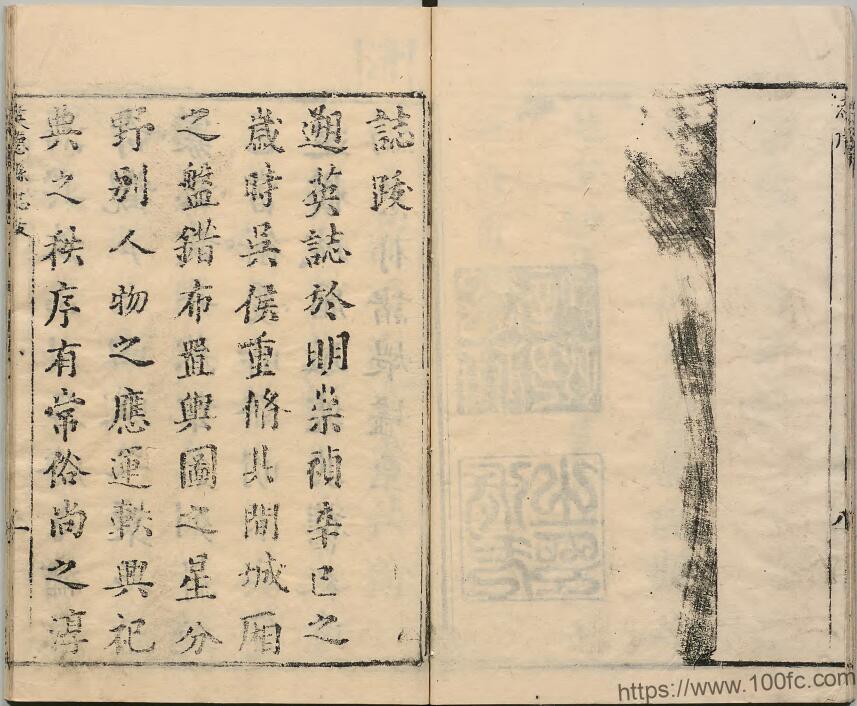 誌跋
遡英誌於明崇禎辛巳之
歲時吳侯重脩其間城厢
之盤錯布置輿圖之星分
野別人物之應運軼興祀
典之秩序有常俗尚之淳
https://www.100fc.com